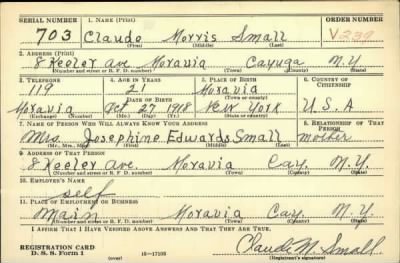 SERIAL NUMBER 1. NAME (Print) ORDER NUMBER
703 Claude Morris Small V239
(First) (Middle) (Last)
2. ADDRESS (Print)
8 Keeler Ave Moravia Cayuga N.Y.
(Number and street or R. F. D. number) (Town) (County) (State)
3. TELEPHONE 4. AGE IN YEARS 5. PLACE OF BIRTH 6. COUNTRY OF CITIZENSHIP
119 21 Moravia
DATE OF BIRTH (Town or county)
Moravia Oct 27 1918 New York U.S.A
(Exchange) (Number) (Mo.) (Day) (Yr.) (State or country)
7. NAME OF PERSON WHO WILL ALWAYS KNOW YOUR ADDRESS 8. RELATIONSHIP OF THAT PERSON
Mrs Josephine Edwards Small Mother
(Mr., Mrs., Miss) (First) (Middle) (Last)
9. ADDRESS OF THAT PERSON
8 Keeler Ave. Moravia Cay. N.Y.
(Number and street or R. F. D. number) (Town) (County) (State)
10. EMPLOYER'S NAME
self
11. PLACE OF EMPLOYMENT OR BUSINESS
Main Moravia Cay. N.Y.
(Number and street or R. F. D. number) (Town) (County) (State)
I AFFIRM THAT I HAVE VERIFIED ABOVE ANSWERS AND THAT THEY ARE TRUE.
REGISTRATION CARD
D. S. S. Form 1 (over) 16—17105 Claude M. Small
(Registrant's signature)